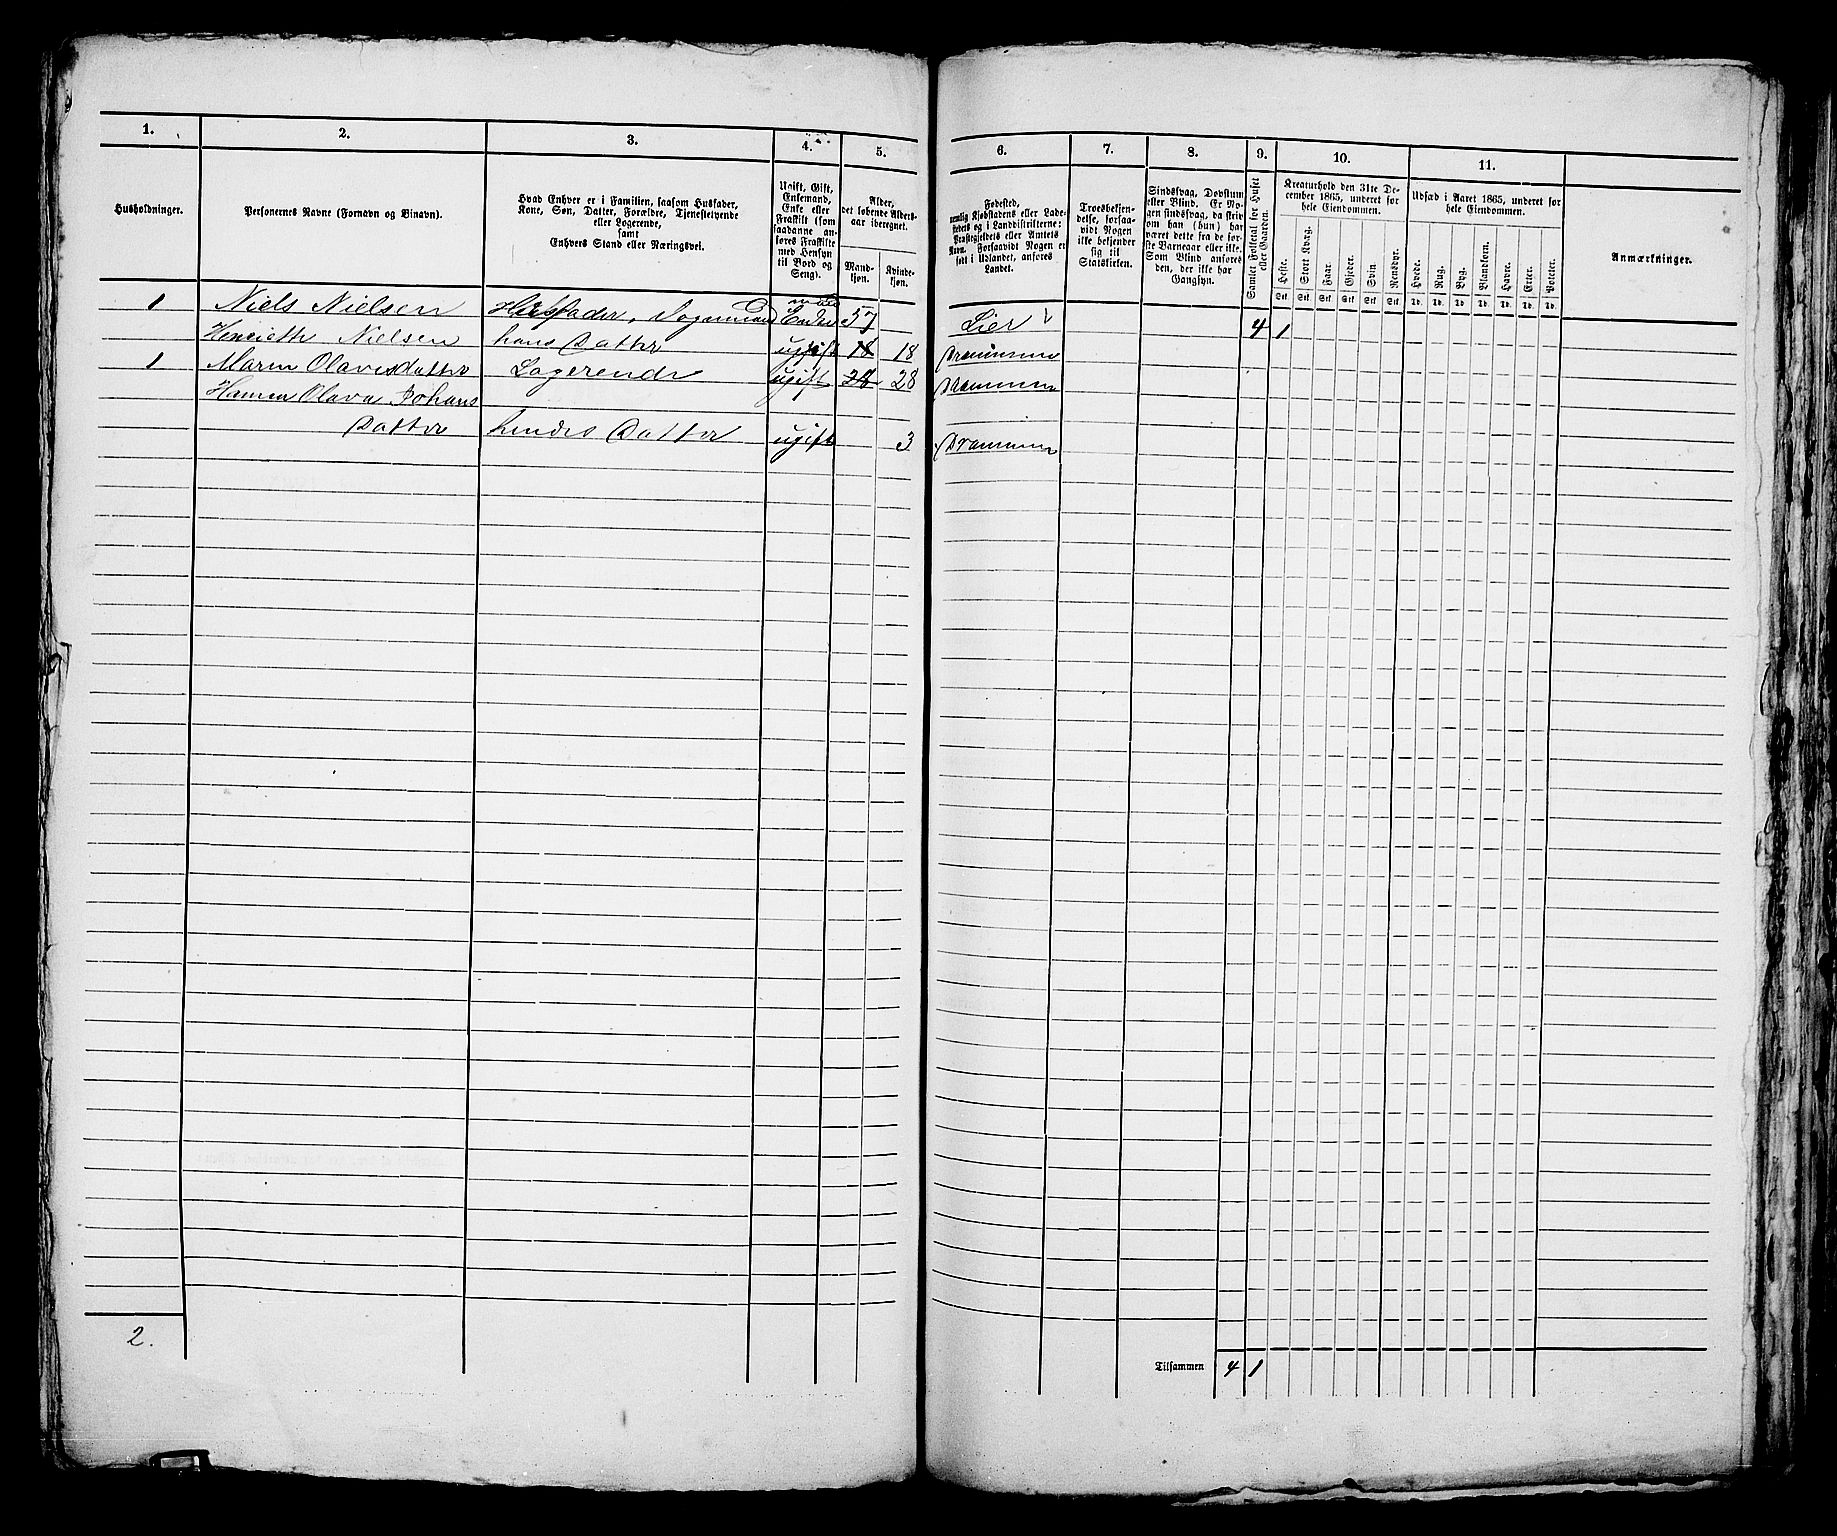 1. 2. 3. 4. 5.
Husholdninger.
Personernes Navne (Fornavn og Binavn).
Hvad Enhver er i Familien, saasom Husfader,
Kone, Søn, Datter, Forældre, Tjenestetyende
eller Logerende,
samt
Enhvers Stand eller Næringsvei.
Ugift, Gift,
Enkemand,
Enke eller
Fraskilt (som
saadanne an-
føres Fraskilte
med Hensyn
til Bord og
Seng).
Alder,
det løbende Alders-
aar iberegnet.
Mand-
kjøn.
Kvinde-
kjøn.
1 Niels Nielsen Husfader, Enke mand 57
Henrieth Nielsen hans Datter ugift 18 18
1 Maren Olavesdatter Logerende ugift 28 28
Hanna Olava Johans
Datter hendes Datter ugift 3
2.
6. 7. 8. 9. 10. 11.
Fødested,
nemlig Kjøbstadens eller Lade-
stedets og i Landdistrikterne:
Præstegjeldets eller Amtets
Navn. Forsaavidt Nogen er
født i Udlandet, anføres
Landet.
Troesbekjen-
delse, forsaa-
vidt Nogen
ikke bekjender
sig til
Statskirken.
Sindssvag, Døvstum
eller Blind. Er No-
gen sindssvag, da skriv
om han (hun) har
været dette fra de før-
ste Barneaar eller ikke.
Som Blind anføres
den, der ikke har
Gangsyn.
Samlet Folketal for Huset
eller Gaarden.
Kreaturhold den 31te De-
cember 1865, underet for
hele Eiendommen.
Heste. Stort Kvæg. Faar. Gjeder. Svin. Rensdyr.
Stk. Stk. Stk. Stk. Stk. Stk.
Udsæd i Aaret 1865, underet for
hele Eiendommen.
Hvede. Rug. Byg. Blandkorn. Havre. Erter. Poteter.
Td. Td. Td. Td. Td. Td. Td.
Anmærkninger.
Lier 4 1
Drammen
Drammen
Drammen
Tilsammen 4 1